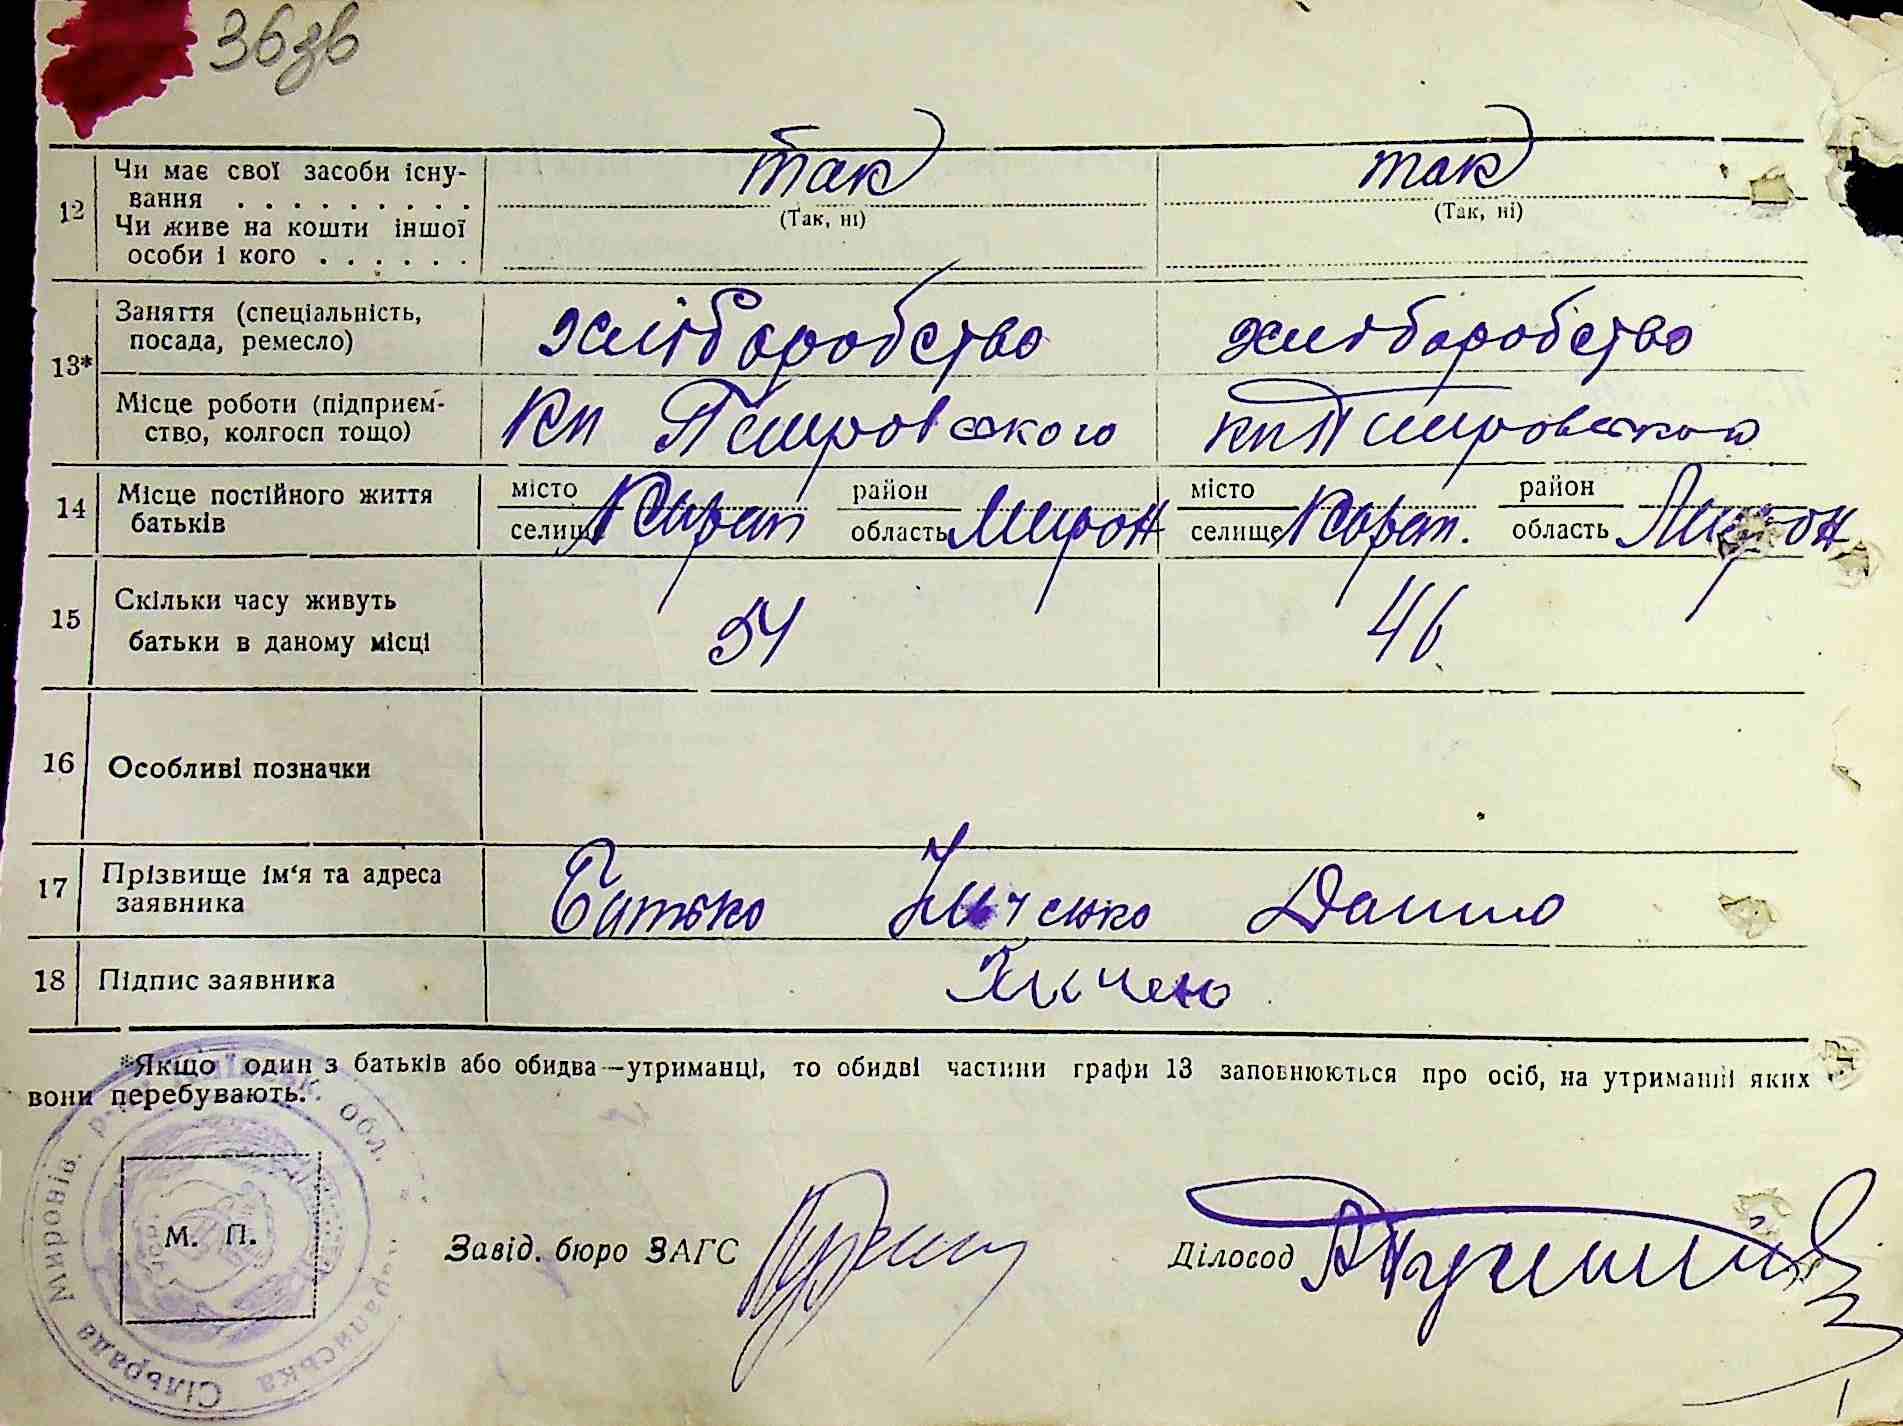 36зв
12 Чи має свої засоби існу-
вання . . . . . . . . . так так
(Так, ні) (Так, ні)
Чи живе на кошти іншої
особи і кого . . . . . .
13* Заняття (спеціальність,
посада, ремесло) хліборобство хліборобство
Місце роботи (підприєм-
ство, колгосп тощо) кп Петровского кп Петровского
14 Місце постійного життя
батьків місто селище Карап район область Мирон місто селище Карап. район область Мирон
15 Скільки часу живуть
батьки в даному місці 54 46
16 Особливі позначки
17 Прізвище ім'я та адреса
заявника Батько Данило
18 Підпис заявника
*Якщо один з батьків або обидва—утриманці, то обидві частини графи 13 заповнюються про осіб, на утриманні яких
вони перебувають.
М. П.
Завід. бюро ЗАГС Діловод
Сільрада Миронів. р-н обл.